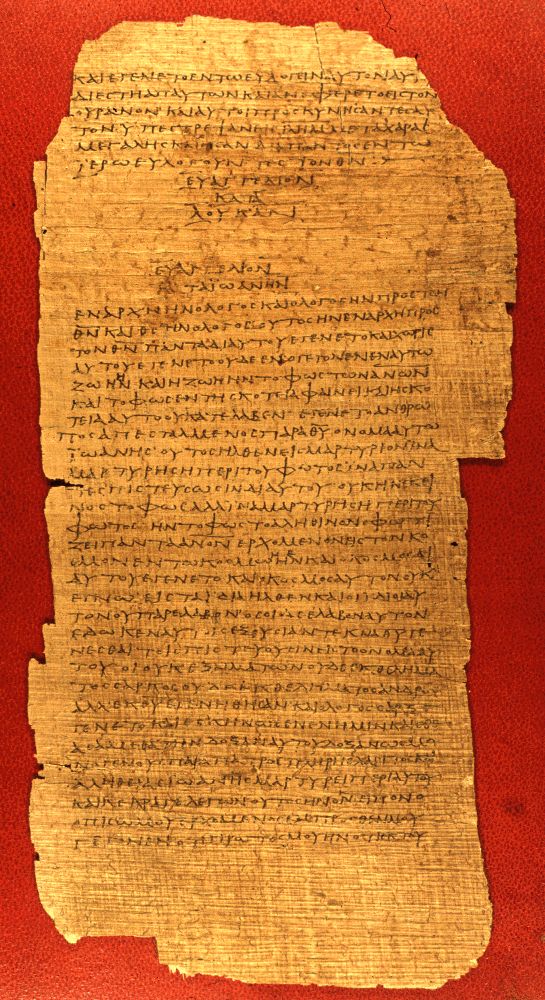 ΚΑΙΕΓΕΝΕΤΟΕΝΤΩΕΥΛΟΓΕΙΝΑΥΤΟΝΑΥ
ΔΙΕϹΤΗΑΠΑΥΤΩΝΚΑΙΑΝΕΦΕΡΕΤΟΕΙϹΤΟΝ
ΟΥΡΑΝΟΝΚΑΙΑΥΤΟΙΠΡΟϹΚΥΝΗϹΑΝΤΕϹΑΥ
ΤΟΝΥΠΕϹΤΡΕΨΑΝΕΙϹΙΛΗΜΜΕΤΑΧΑΡΑϹ
ΜΕΓΑΛΗϹΚΑΙΗϹΑΝΔΙΑΠΑΝΤΟϹΕΝΤΩ
ΙΕΡΩΕΥΛΟΓΟΥΝΤΕϹΤΟΝΘΝ
ΕΥΑΓΓΕΛΙΟΝ
ΚΑΤΑ
ΛΟΥΚΑΝ
ΕΥΑΓΓΕΛΙΟΝ
ΚΑΤΑΙΩΑΝΗΝ
ΕΝΑΡΧΗΗΝΟΛΟΓΟϹΚΑΙΟΛΟΓΟϹΗΝΠΡΟϹΤΟΝ
ΘΝΚΑΙΘϹΗΝΟΛΟΓΟϹΟΥΤΟϹΗΝΕΝΑΡΧΗΠΡΟϹ
ΤΟΝΘΝΠΑΝΤΑΔΙΑΥΤΟΥΕΓΕΝΕΤΟΚΑΙΧΩΡΙϹ
ΑΥΤΟΥΕΓΕΝΕΤΟΟΥΔΕΕΝΟΓΕΓΟΝΕΝΕΝΑΥΤΩ
ΖΩΗΗΝΚΑΙΗΖΩΗΗΝΤΟΦΩϹΤΩΝΑΝΩΝ
ΚΑΙΤΟΦΩϹΕΝΤΗϹΚΟΤΙΑΦΑΙΝΕΙΚΑΙΗϹΚΟ
ΤΕΙΑΑΥΤΟΟΥΚΑΤΕΛΑΒΕΝΕΓΕΝΕΤΟΑΝΘΡΩ
ΠΟϹΑΠΕϹΤΑΛΜΕΝΟϹΠΑΡΑΘΥΟΝΟΜΑΑΥΤΩ
ΙΩΑΝΗϹΟΥΤΟϹΗΛΘΕΝΕΙϹΜΑΡΤΥΡΙΟΝΙΝΑ
ΜΑΡΤΥΡΗϹΗΠΕΡΙΤΟΥΦΩΤΟϹΙΝΑΠΑΝ
ΤΕϹΠΙϹΤΕΥϹΩϹΙΝΔΙΑΥΤΟΥΟΥΚΗΝΕΚΕΙ
ΝΟϹΤΟΦΩϹΑΛΛΙΝΑΜΑΡΤΥΡΗϹΗΠΕΡΙΤΟΥ
ΦΩΤΟϹΗΝΤΟΦΩϹΤΟΑΛΗΘΙΝΟΝΟΦΩΤΙ
ΖΕΙΠΑΝΤΑΑΝΟΝΕΡΧΟΜΕΝΟΝΕΙϹΤΟΝΚΟ
ϹΜΟΝΕΝΤΩΚΟϹΜΩΗΝΚΑΙΟΚΟϹΜΟϹΔΙ
ΑΥΤΟΥΕΓΕΝΕΤΟΚΑΙΟΚΟϹΜΟϹΑΥΤΟΝΟΥΚ
ΕΓΝΩΕΙϹΤΑΙΔΙΑΗΛΘΕΝΚΑΙΟΙΙΔΙΟΙΑΥ
ΤΟΝΟΥΠΑΡΕΛΑΒΟΝΟϹΟΙΔΕΕΛΑΒΟΝΑΥΤΟΝ
ΕΔΩΚΕΝΑΥΤΟΙϹΕΞΟΥϹΙΑΝΤΕΚΝΑΘΥΓΕ
ΝΕϹΘΑΙΤΟΙϹΠΙϹΤΕΥΟΥϹΙΝΕΙϹΤΟΟΝΟΜΑΑΥ
ΤΟΥΟΙΟΥΚΕΞΑΙΜΑΤΩΝΟΥΔΕΕΚΘΕΛΗΜΑ
ΤΟϹϹΑΡΚΟϹΟΥΔΕΕΚΘΕΛΗΜΑΤΟϹΑΝΔΡΟϹ
ΑΛΛΕΚΘΥΕΓΕΝΗΘΗϹΑΝΚΑΙΟΛΟΓΟϹϹΑΡΞΕ
ΓΕΝΕΤΟΚΑΙΕϹΚΗΝΩϹΕΝΕΝΗΜΙΝΚΑΙΕΘΕ
ΑϹΑΜΕΘΑΤΗΝΔΟΞΑΝΑΥΤΟΥΔΟΞΑΝΩϹΜΟ
ΝΟΓΕΝΟΥϹΠΑΡΑΠΑΤΡΟϹΠΛΗΡΗϹΧΑΡΙΤΟϹΚΑΙ
ΑΛΗΘΕΙΑϹΙΩΑΝΗϹΜΑΡΤΥΡΕΙΠΕΡΙΑΥΤΟΥ
ΚΑΙΚΕΚΡΑΓΕΛΕΓΩΝΟΥΤΟϹΗΝΟΝΕΙΠΟΝΟ
ΟΠΙϹΩΜΟΥΕΡΧΟΜΕΝΟϹΕΜΠΡΟϹΘΕΝΜΟΥ
ΓΕΓΟΝΕΝΟΤΙΠΡΩΤΟϹΜΟΥΗΝΟΤΙΕΚΤΟΥ